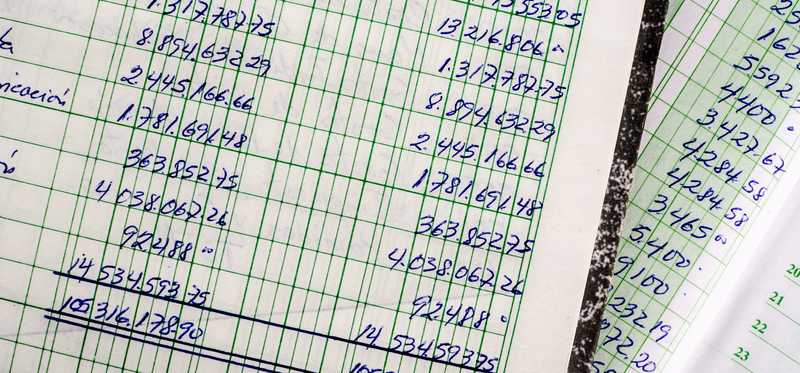 1.317.787.75
8.894.632.29
2.445.166.66
1.781.691.48
363.852.75
4.038.067.26
92.488 =
14 534.593 75
105 316.178.90
13 216.806 =
1.317.787.75
8.894.632.29
2.445.166.66
1.781.691.48
363.852.75
4.038.067.26
92.488
14 534.593 75
4400
3.427.67
4.284.58
4.284.58
3.465 =
5.400
9100
20
21
22
23